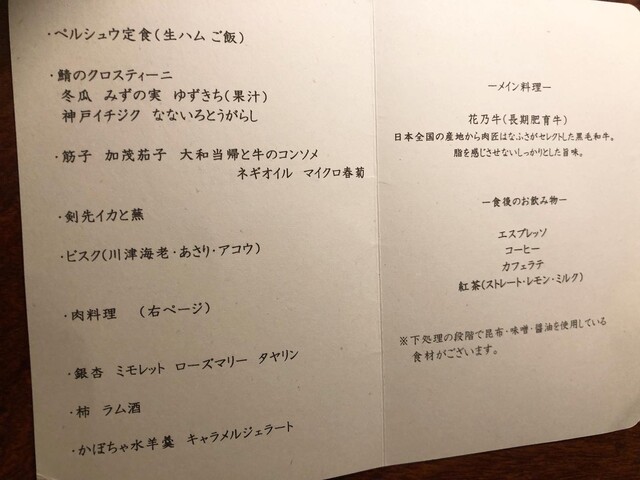 ・ペルシュウ定食(生ハム ご飯)
・鯖のクロスティーニ
冬瓜 みずの実 ゆずきち(果汁)
神戸イチジク なないろとうがらし
・筋子 加茂茄子 大和当帰と牛のコンソメ
ネギオイル マイクロ春菊
・剣先イカと蕪
・ビスク(川津海老・あさり・アコウ)
・肉料理 (右ページ)
・銀杏 ミモレット ローズマリー タヤリン
・柿 ラム酒
・かぼちゃ水羊羹 キャラメルジェラート
ーメイン料理ー
花乃牛(長期肥育牛)
日本全国の産地から肉匠はなふさがセレクトした黒毛和牛。
脂を感じさせないしっかりとした旨味。
ー食後のお飲み物ー
エスプレッソ
コーヒー
カフェラテ
紅茶(ストレート・レモン・ミルク)
※下処理の段階で昆布・味噌・醤油を使用している
食材がございます。